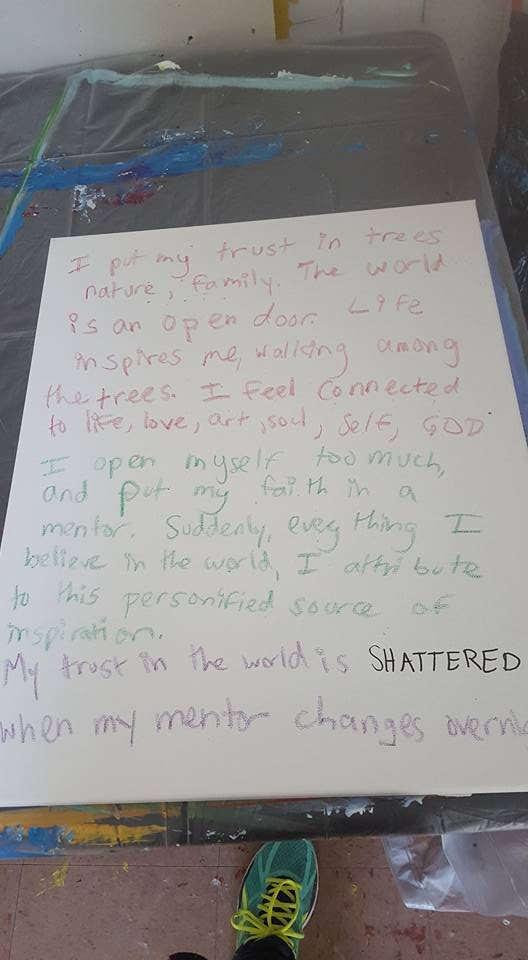 I put my trust in trees
nature, family. The world
is an open door. Life
inspires me, walking among
the trees. I feel connected
to life, love, art, soul, self, GOD
I open myself too much,
and put my faith in a
mentor. Suddenly, every thing I
believe in the world, I attribute
to this personified source of
inspiration.
My trust in the world is SHATTERED
when my mentor changes